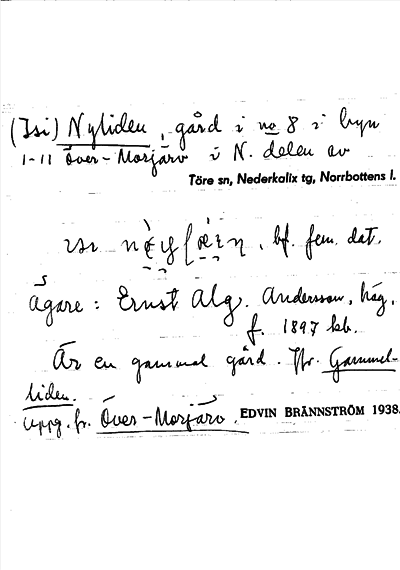 (Isi) Nyliden, gård i no 8 i byn
1-11 Över-Morjärv i N. delen av
Töre sn, Nederkalix tg, Norrbottens l.
bf. fem. dat.
Ägare: Ernst Alg. Andersson, häg,
f. 1897 hb.
Är en gammal gård. Jfr. Gammel-
liden.
Uppg. fr. Över-Morjärv. EDVIN BRÄNNSTRÖM 1938.